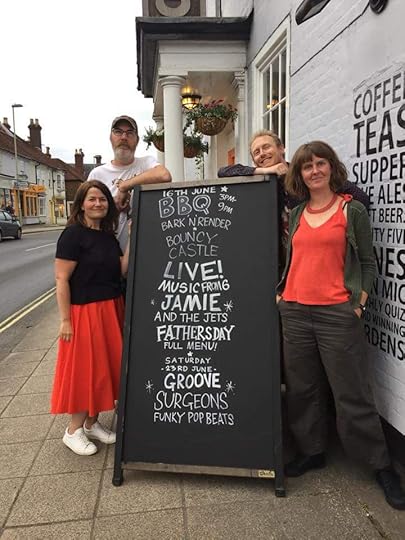 16TH JUNE
BBQ 3PM-
9PM
BARK N RENDER
BOUNCY
CASTLE
LIVE!
MUSIC FROM
JAMIE
AND THE JETS
FATHERSDAY
FULL MENU!
SATURDAY
-23RD JUNE-
GROOVE
SURGEONS
FUNKY POP BEATS
COFFEE
TEAS
SUPPER
ALES
AND WINNING